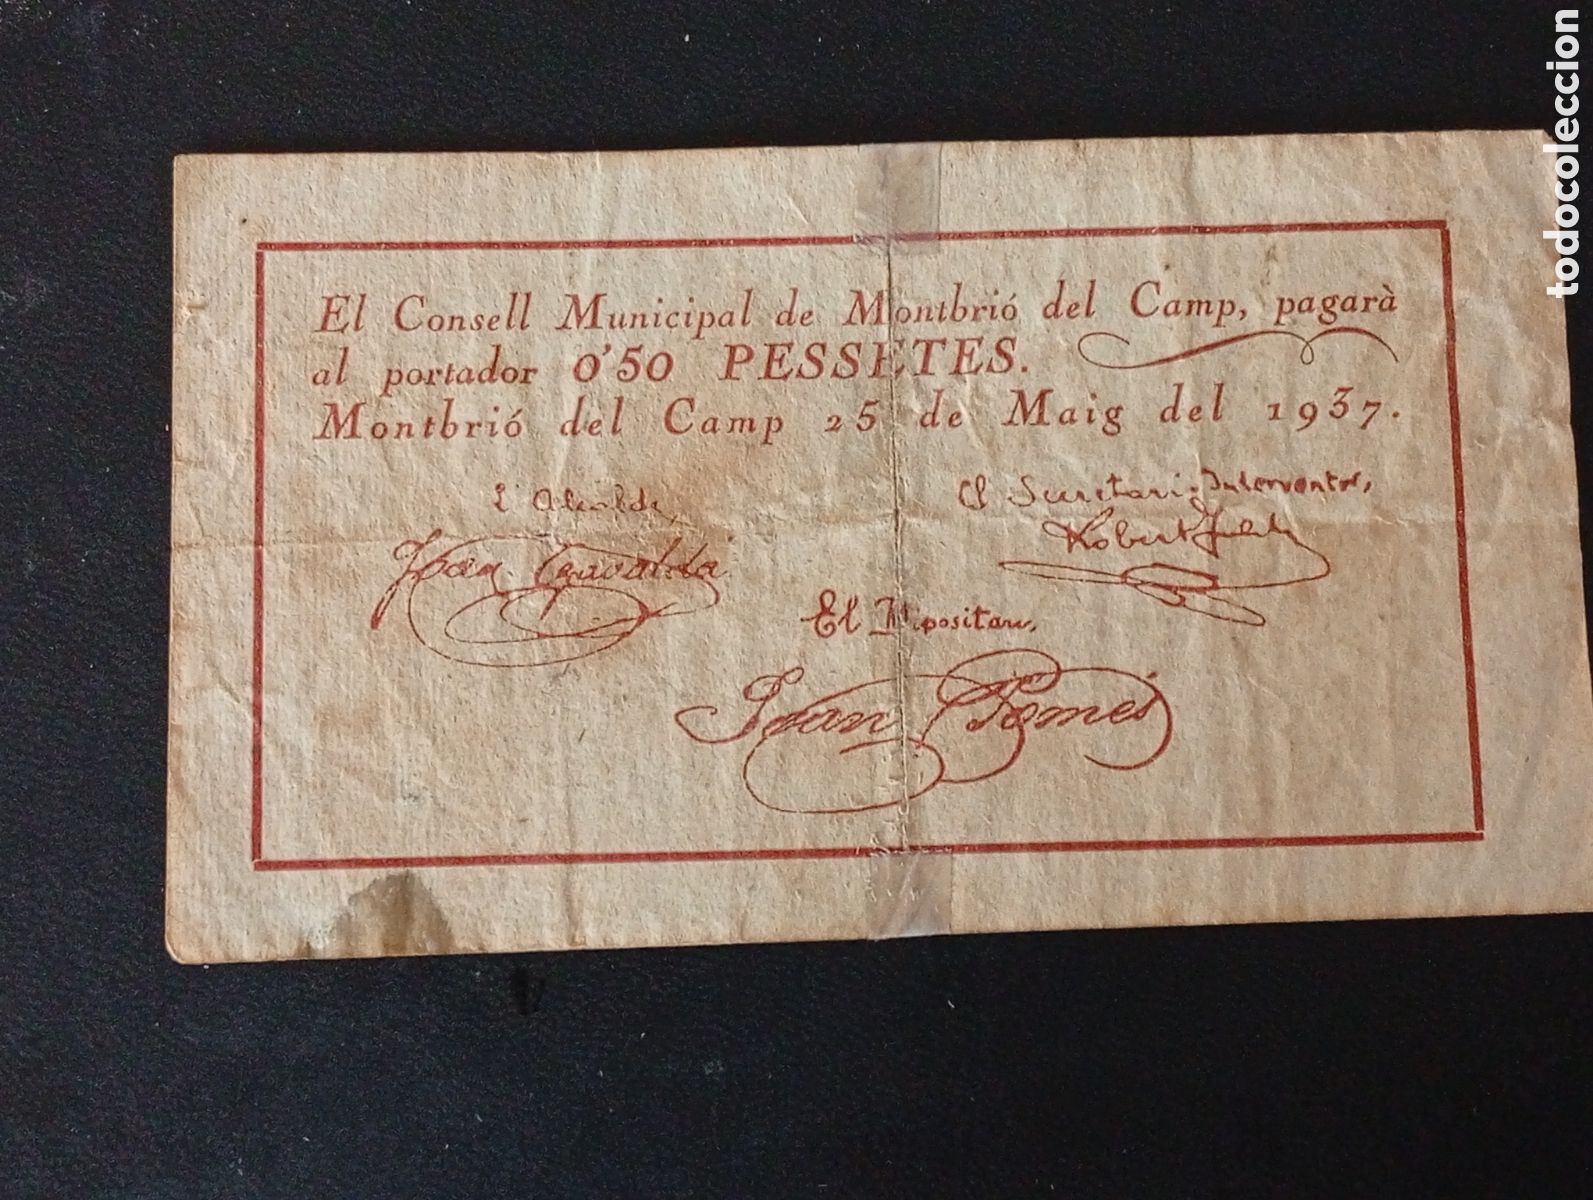 El Consell Municipal de Montbrió del Camp, pagarà
al portador 0'50 PESSETES.
Montbrió del Camp 25 de Maig del 1937.
L'Alcalde,
El Secretari-Interventor,
Joan
Robert
El Dipositari,
Joan Gomés
todocoleccion